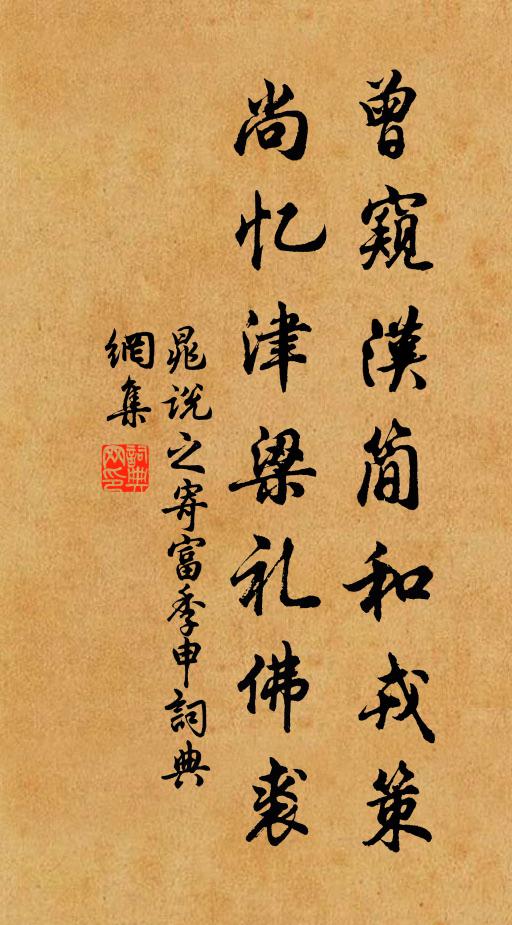 曾窺漢简和戎策
尚忆津梁礼佛裘
晁说之寄富季申詞典
網集
詞典
网印